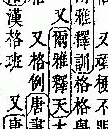 雅釋訓格格
又爾雅釋天
又格例唐
漢格班　又唐